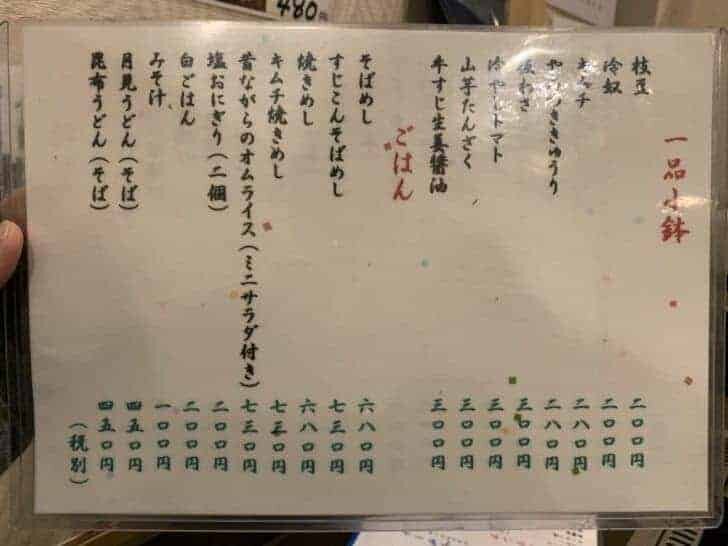 480
一品小鉢
枝豆 二〇〇円
冷奴 二〇〇円
キムチ 二八〇円
やみつききゅうり 二八〇円
板わさ 三〇〇円
冷やしトマト 三〇〇円
山芋たんざく 三〇〇円
牛すじ生姜醤油 三〇〇円
ごはん
そばめし 六八〇円
すじこんそばめし 七三〇円
焼きめし 六八〇円
キムチ焼きめし 七三〇円
昔ながらのオムライス（ミニサラダ付き） 七三〇円
塩おにぎり（二個） 二〇〇円
白ごはん 二〇〇円
みそ汁 一〇〇円
月見うどん（そば） 四五〇円
昆布うどん（そば） 四五〇円
（税別）